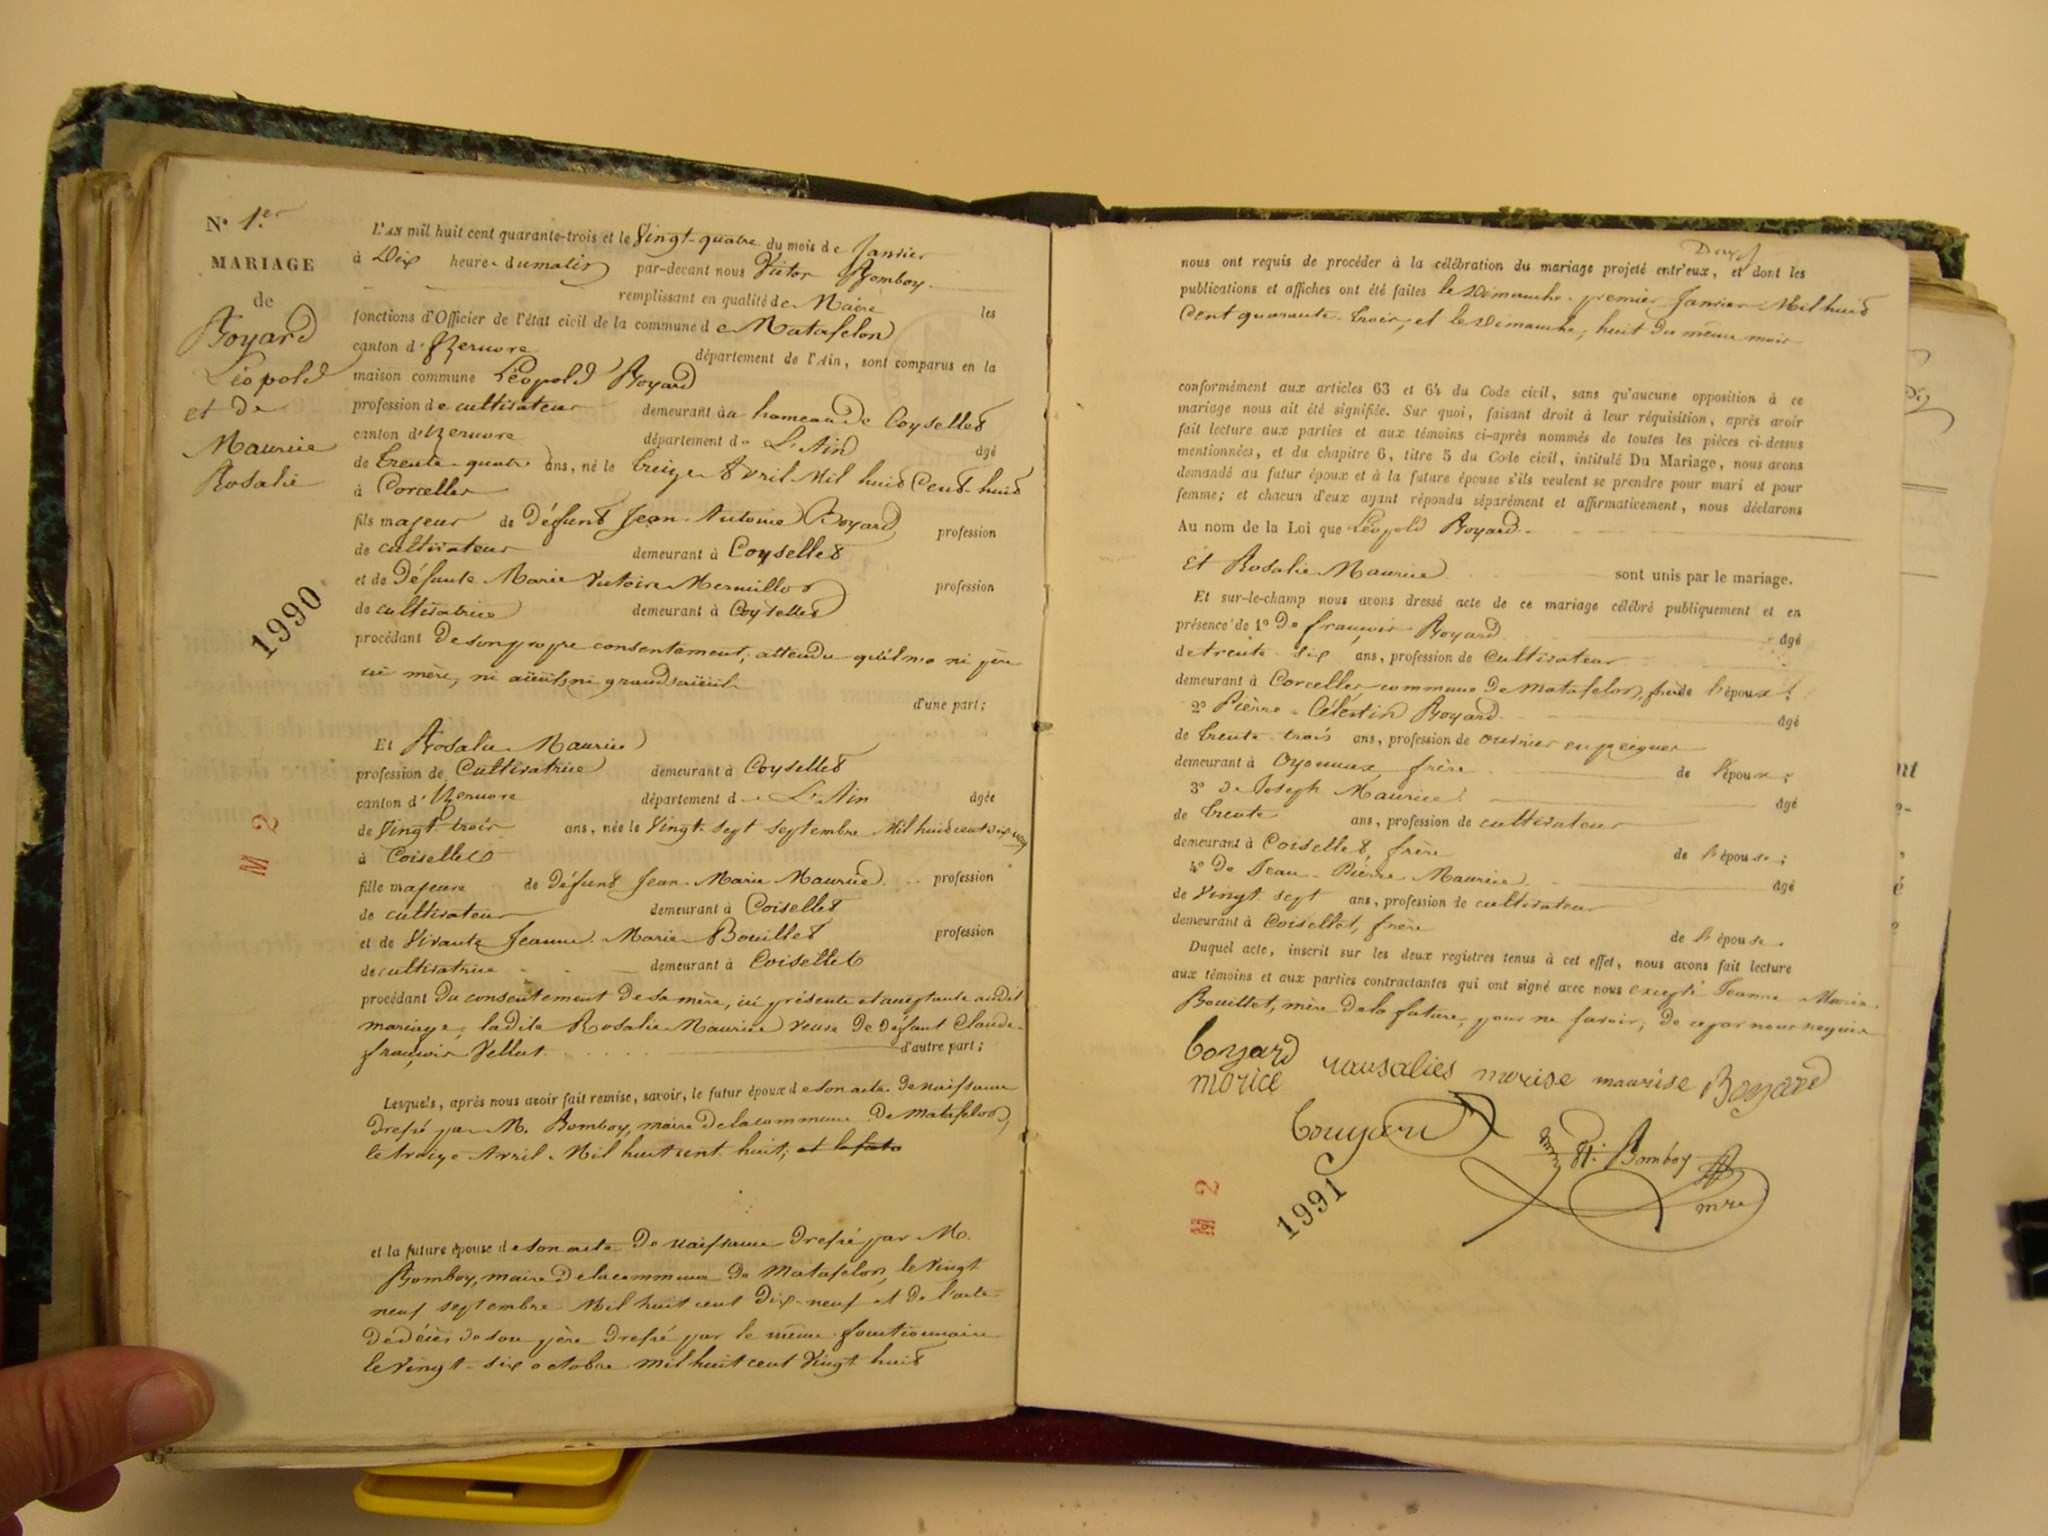 N° 1.er
MARIAGE
de
Boyard
Léopold
et de
Maurice
Rosalie
1990
M 2
L'AN mil huit cent quarante-trois et le Vingt-quatre du mois de Janvier
à Dix heure du matin par-devant nous Victor Bomboy
remplissant en qualité de Maire les
fonctions d'Officier de l'état civil de la commune de Matafelon
canton d'Izernore département de l'Ain, sont comparus en la
maison commune Léopold Boyard
profession de cultivateur demeurant au hameau de Coysellet
canton d'Izernore département de L'Ain âgé
de trente-quatre ans, né le treize Avril Mil huit Cent huit
à Corcelles
fils majeur de Défunt Jean-Antoine Boyard profession
de cultivateur demeurant à Coysellet
et de Défunte Marie Victoire Mermillod profession
de cultivatrice demeurant à Coysellet
procédant de son propre consentement, attendu qu'il n'a ni père
ni mère, ni aïeuls ni grands aïeuls
d'une part;
Et Rosalie Maurice
profession de Cultivatrice demeurant à Coysellet
canton d'Izernore département de L'Ain âgée
de Vingt-trois ans, née le Vingt-sept septembre Mil huit cent dix neuf
à Coisellet
fille majeure de défunt Jean-Marie Maurice profession
de cultivateur demeurant à Coisellet
et de Vivante Jeanne-Marie Bouillet profession
de cultivatrice demeurant à Coisellet
procédant du consentement de sa mère, ici présente et acceptante audit
mariage, ladite Rosalie Maurice veuve de défunt Claude-
françois Vellut d'autre part;
Lesquels, après nous avoir fait remise, savoir, le futur époux de son acte de naissance
dressé par M. Bomboy, maire de la commune de Matafelon,
le treize Avril Mil huit cent huit; et la future
et la future épouse de son acte de naissance dressé par M.
Bomboy, maire de la commune de Matafelon, le Vingt
neuf septembre Mil huit cent dix-neuf et de l'acte
de décès de son père dressé par le même fonctionnaire
le Vingt-six octobre mil huit cent Vingt huit
nous ont requis de procéder à la célébration du mariage projeté entr'eux, et dont les
publications et affiches ont été faites le Dimanche premier Janvier Mil huit
Cent quarante-trois, et le Dimanche, huit du même mois
conformément aux articles 63 et 64 du Code civil, sans qu'aucune opposition à ce
mariage nous ait été signifiée. Sur quoi, faisant droit à leur réquisition, après avoir
fait lecture aux parties et aux témoins ci-après nommés de toutes les pièces ci-dessus
mentionnées, et du chapitre 6, titre 5 du Code civil, intitulé Du Mariage, nous avons
demandé au futur époux et à la future épouse s'ils veulent se prendre pour mari et pour
femme; et chacun d'eux ayant répondu séparément et affirmativement, nous déclarons
Au nom de la Loi que Léopold Boyard
Et Rosalie Maurice sont unis par le mariage.
Et sur-le-champ nous avons dressé acte de ce mariage célébré publiquement et en
présence de 1° De françois Boyard âgé
de trente-six ans, profession de Cultivateur
demeurant à Corcelles commune de Matafelon, frère de l'époux;
2° Pierre-Célestin Boyard âgé
de trente-trois ans, profession de ouvrier en peignes
demeurant à Oyonnax frère de l'époux;
3° de Joseph Maurice âgé
de trente ans, profession de cultivateur
demeurant à Coisellet, frère de l'épouse;
4° De Jean-Pierre Maurice âgé
de Vingt sept ans, profession de cultivateur
demeurant à Coisellet, frère de l'épouse.
Duquel acte, inscrit sur les deux registres tenus à cet effet, nous avons fait lecture
aux témoins et aux parties contractantes qui ont signé avec nous excepté Jeanne Marie
Bouillet, mère de la future, pour ne savoir, de ce par nous requise
boyard rausalies morise maurise Boyard
morice
bouyard
Vt. Bomboy
mre
M 2
1991